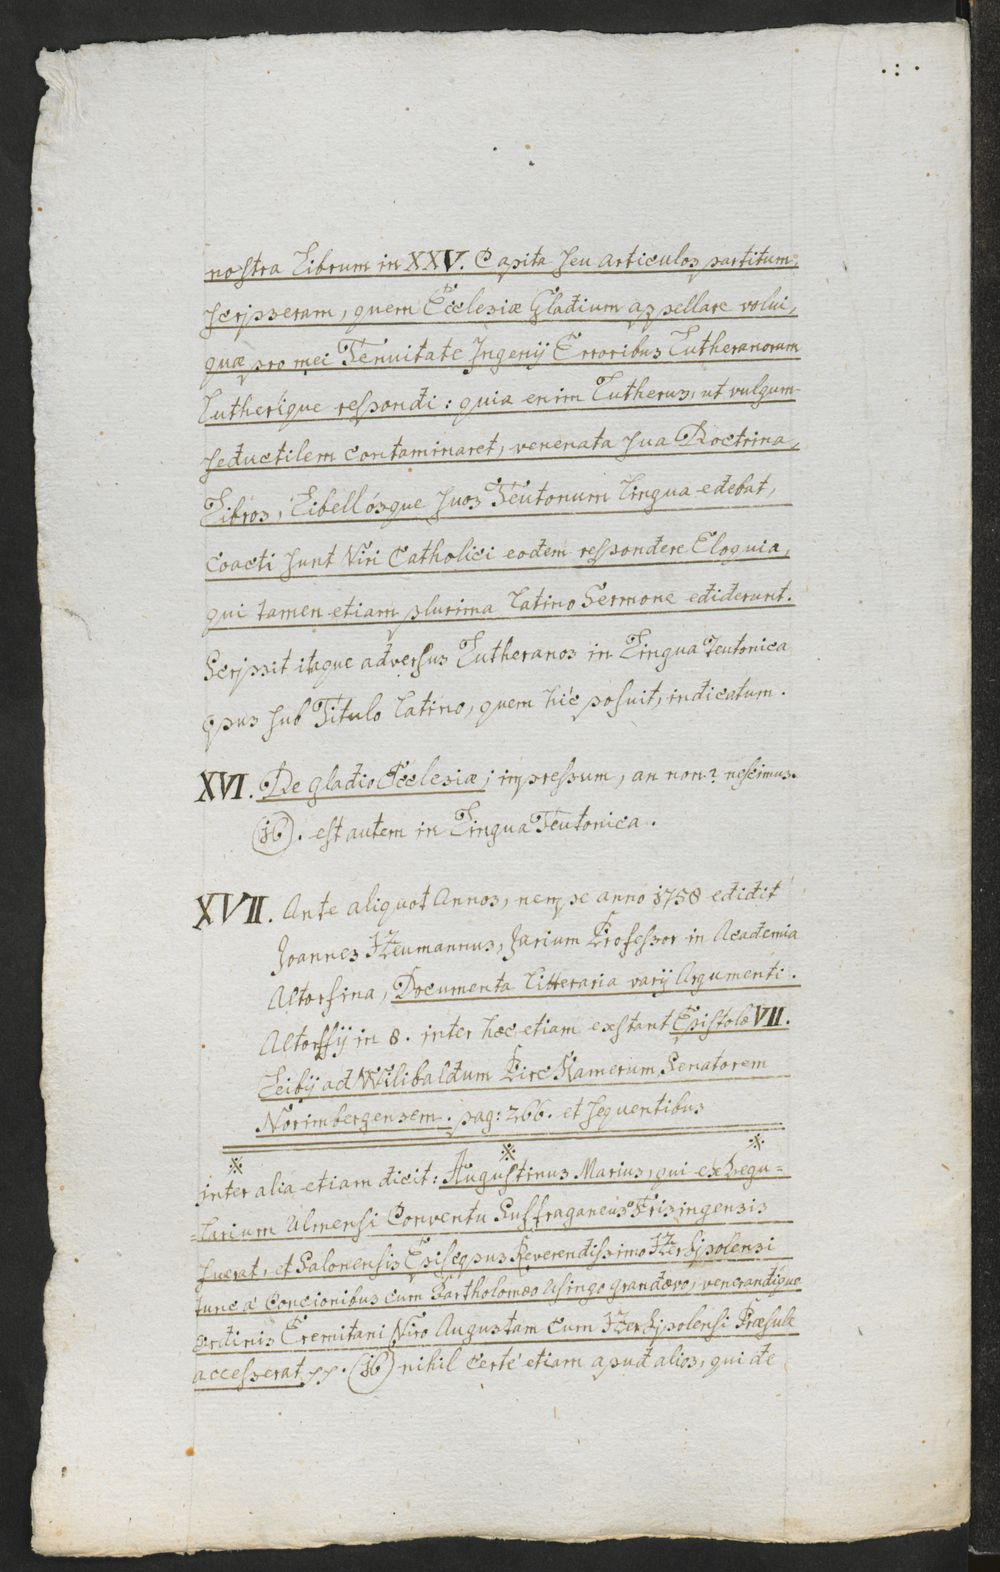 nostra Librum in XXV. Capita seu articulos partitum,
scripseram, quem Ecclesiæ Gladium appellare volui,
quæ pro mei Tenuitate Ingenij Erroribus Lutheranorum
Lutherique respondi: quia enim Lutherus, ut vulgum
seductilem contaminaret, venenata sua Doctrina,
Libros, Libellósque suos Teutonum lingua edebat,
coacti sunt Viri Catholici eodem respondere Eloquia,
qui tamen etiam plurima latino Sermone ediderunt.
Scripsit itaque adversus Lutheranos in Lingua Teutonica
opus sub Titulo latino, quem hic posuit, indicatum.
XVI. De gladio Ecclesiæ; impressum, an non? nescimus.
(16). est autem in Lingua Teutonica.
XVII. Ante aliquot Annos, nempe anno 1758 edidit
Joannes Heumannus, Jurium Professor in Academia
Altorfina, Documenta Litteraria varij Argumenti.
Altorffij in 8. inter hæc etiam exstant Epistolæ VII.
Leibij ad Wilibaldum Pirckamerum Senatorem
Norimbergensem. pag: 266. et sequentibus
inter alia etiam dicit: Augustinus Marius, qui ex Regu=
=larium Ulmensi Conventu Suffraganeus Frisingensis
fuerat, et Salonensis Episcopus Reverendissimo Herbipolensi
tunc a Concionibus cum Bartholomæo Usingo grandævo, venerandique
ordinis Eremitani Viro Augustam cum Herbipolensi Præsule
accesserat pp. (16) nihil certè etiam apud alios, qui de